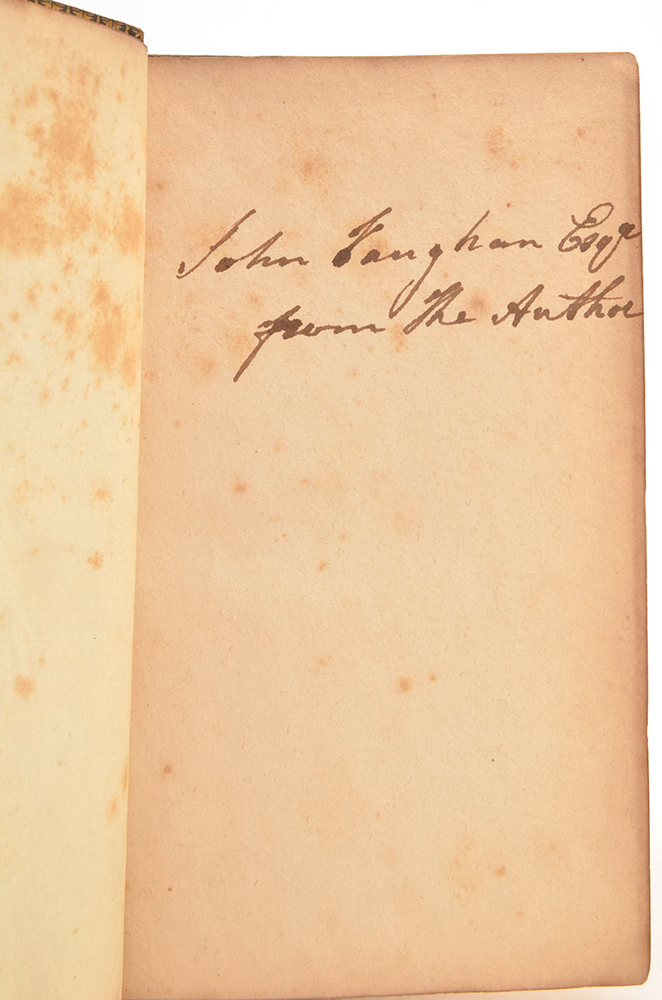 John Vaughan Esqr
from the Author